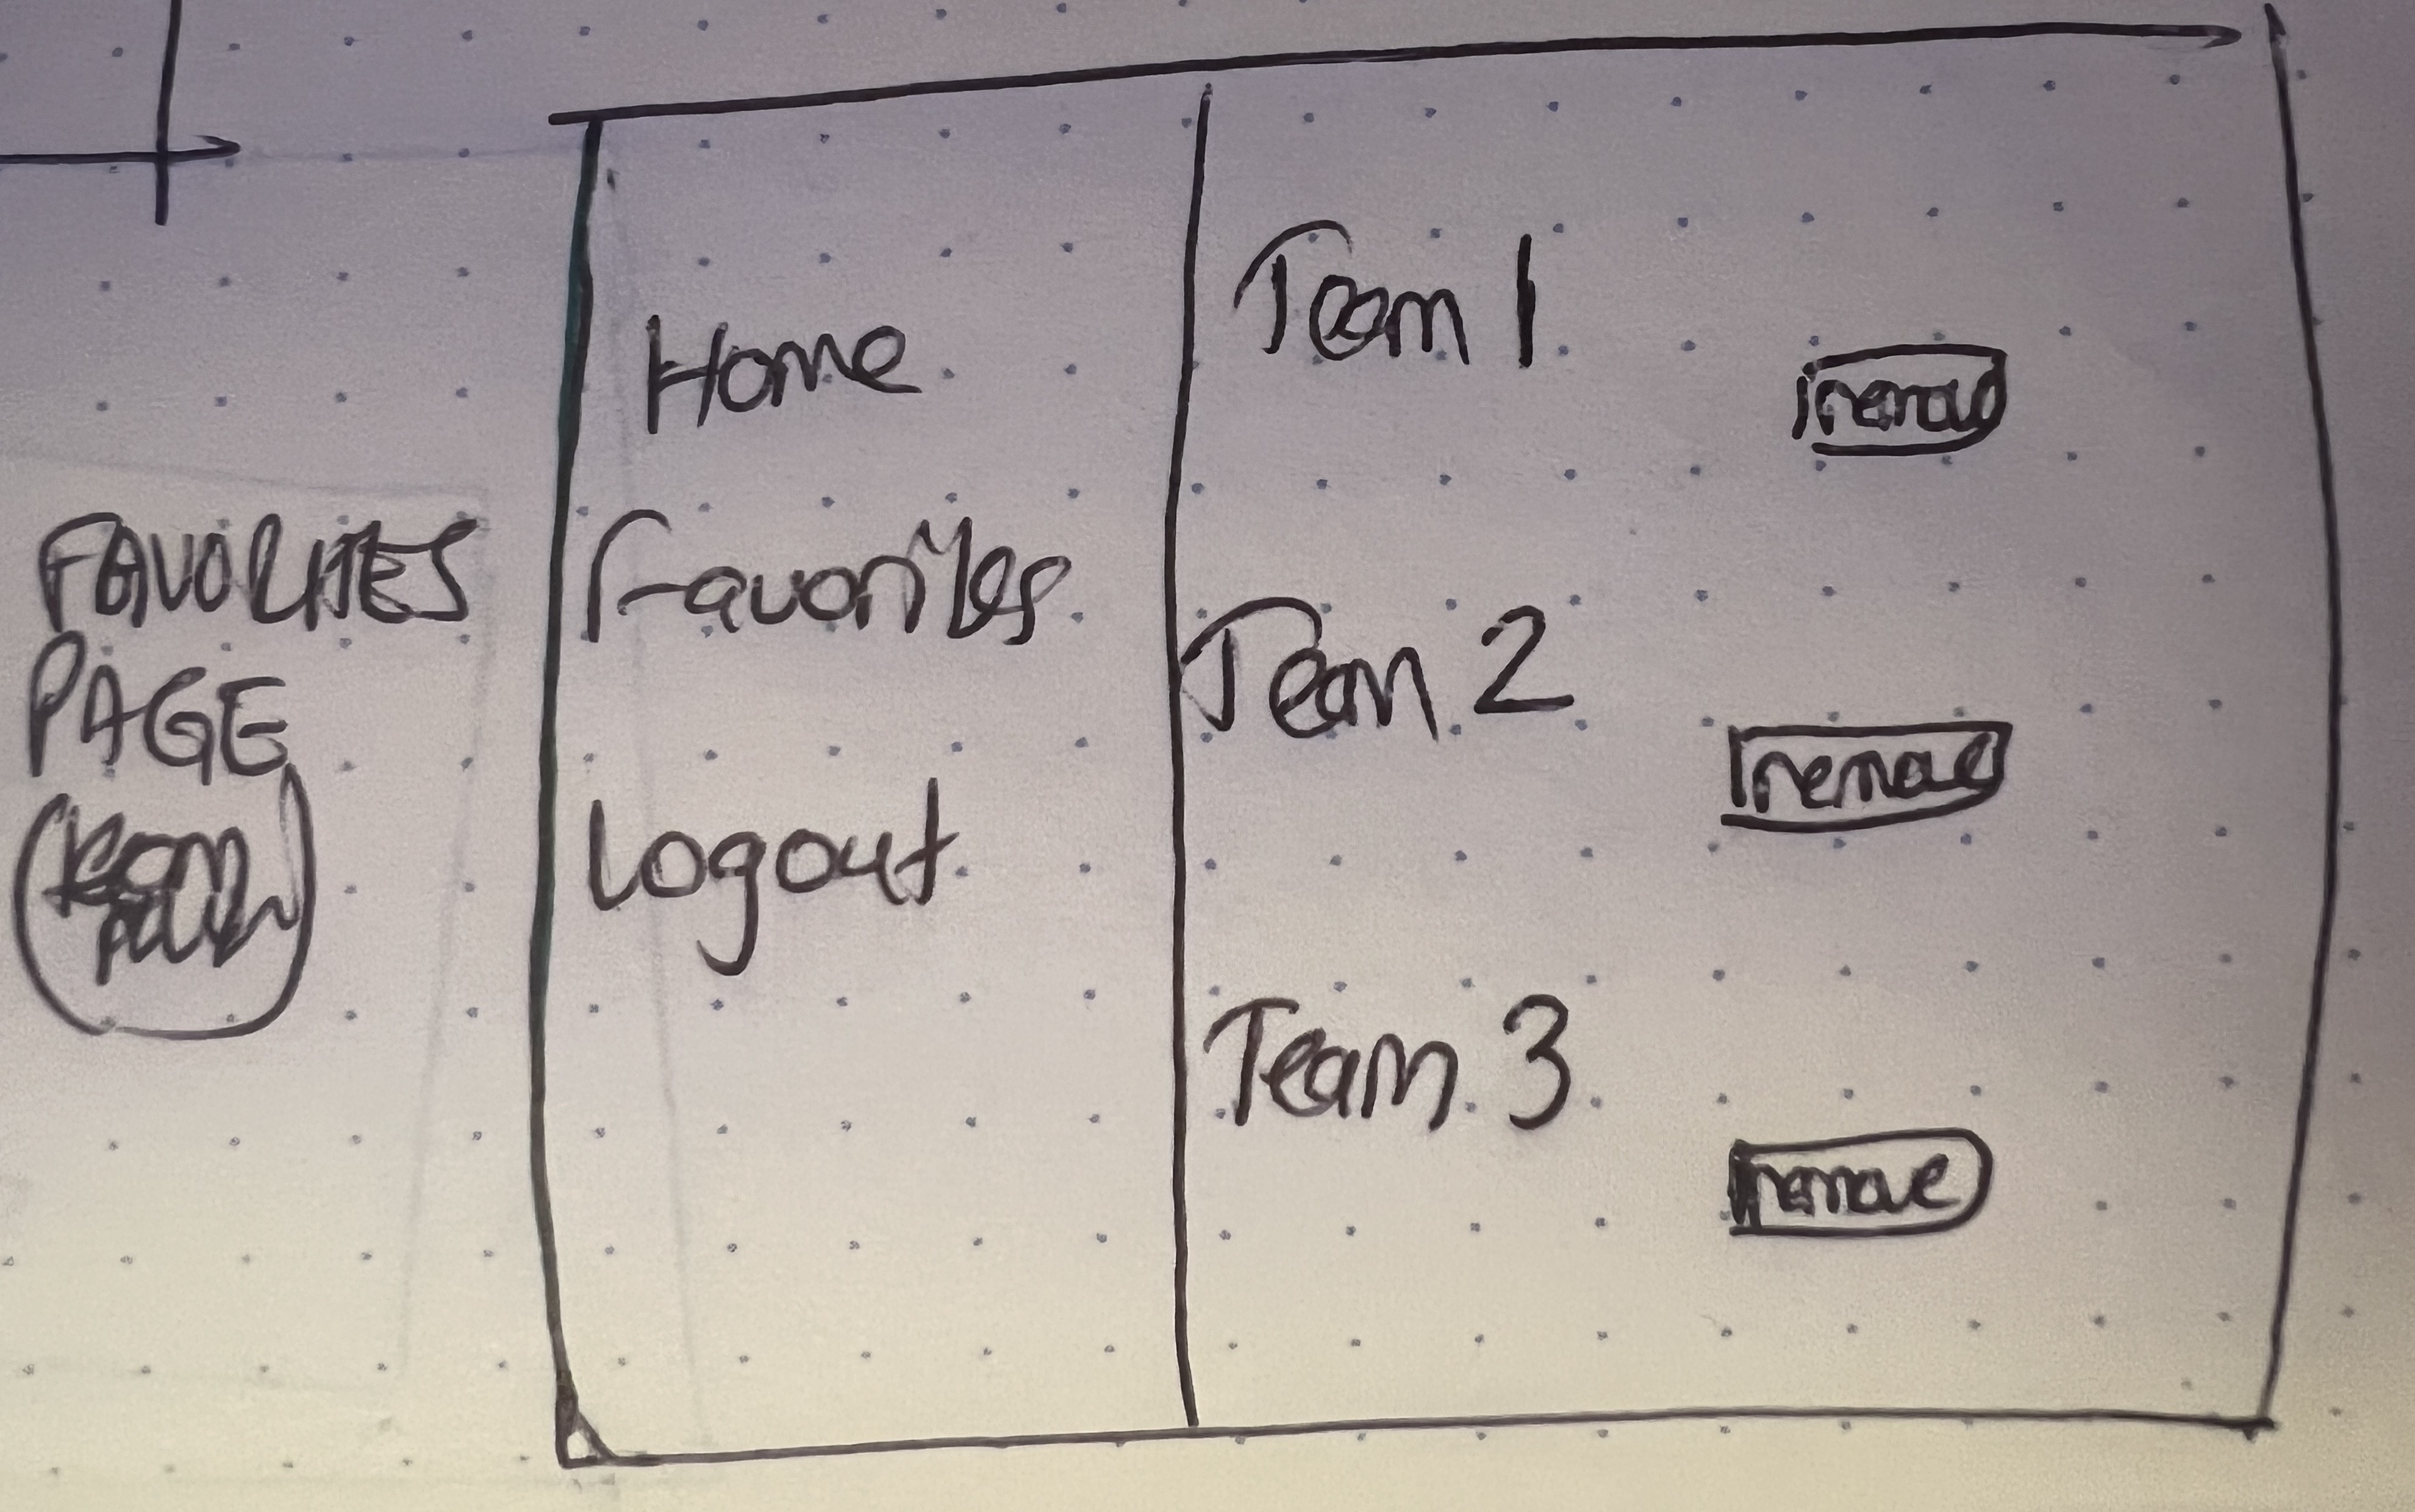 FAVORITES
PAGE
Home
Favorites
Logout
Team 1
remove
Team 2
remove
Team 3
remove